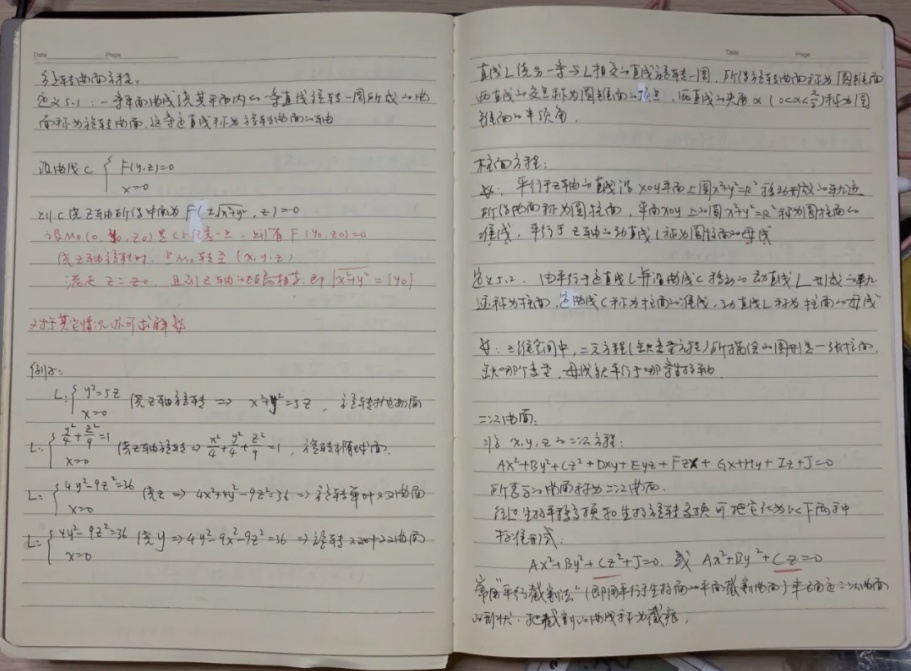 Date Page
旋转曲面方程.
定义5.1:一条平面曲线绕其平面内的一条直线旋转一周所成的曲
面称为旋转曲面.这条定直线称为旋转曲面的轴
设曲线C { F(y,z)=0
x=0
则C绕Z轴所得曲面为 F(±√x²+y², z)=0
设M₀(0, y₀, z₀)是C上任意一点,则有 F(y₀,z₀)=0
绕Z轴旋转时,点M₀转至(x,y,z)
满足 z=z₀ 且到Z轴的距离相等,即 √x²+y² = |y₀|
对于其它情况亦可求解
例子:
L:{ y²=5z
x=0 绕Z轴旋转 ⇒ x²+y²=5z, 旋转抛物面
L:{ y²/4+z²/9=1
x=0 绕Z轴旋转⇒ x²/4+y²/4+z²/9=1, 旋转椭球面.
L:{ 4y²-9z²=36
x=0 绕z ⇒ 4x²+4y²-9z²=36 ⇒ 旋转单叶双曲面
L:{ 4y²-9z²=36
x=0 绕y ⇒ 4y²-9x²-9z²=36 ⇒ 旋转双叶双曲面
Date Page
直线L绕另一条与L相交的直线旋转一周,所得旋转曲面称为圆锥面
两直线的交点称为圆锥面的顶点,两直线的夹角α(0<α<π/2)称为圆
锥面的半顶角.
柱面方程:
平行于Z轴的直线沿xoy平面上圆x²+y²=R²移动形成的轨迹
所得曲面称为圆柱面,平面xoy上的圆x²+y²=R²称为圆柱面的
准线,平行于Z轴的动直线L称为圆柱面的母线
定义5.2. 由平行于定直线L并沿曲线C移动的动直线L形成的轨
迹称为柱面,定曲线C称为柱面的准线,动直线L称为柱面的母线
三维空间中,二元方程(缺变量方程)所描绘的图形是一张柱面.
缺哪个变量,母线就平行于哪条坐标轴.
二次曲面.
形 x,y,z的二次方程:
Ax²+By²+Cz²+Dxy+Eyz+Fzx+Gx+Hy+Iz+J=0
所表示的曲面称为二次曲面.
经过坐标平移变换和坐标旋转变换可把它化为以下两种
标准形式:
Ax²+By²+Cz²+J=0. 或 Ax²+By²+Cz=0
常用"平行截割法"(即用平行于坐标面的平面截割曲面)来确定二次曲面
的形状,把截割的曲线称为截痕.